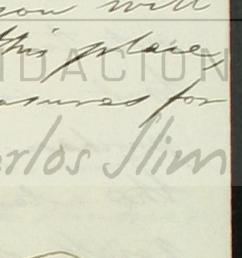 you will
this place,
NDACIÓN
asures for
arlos Slim